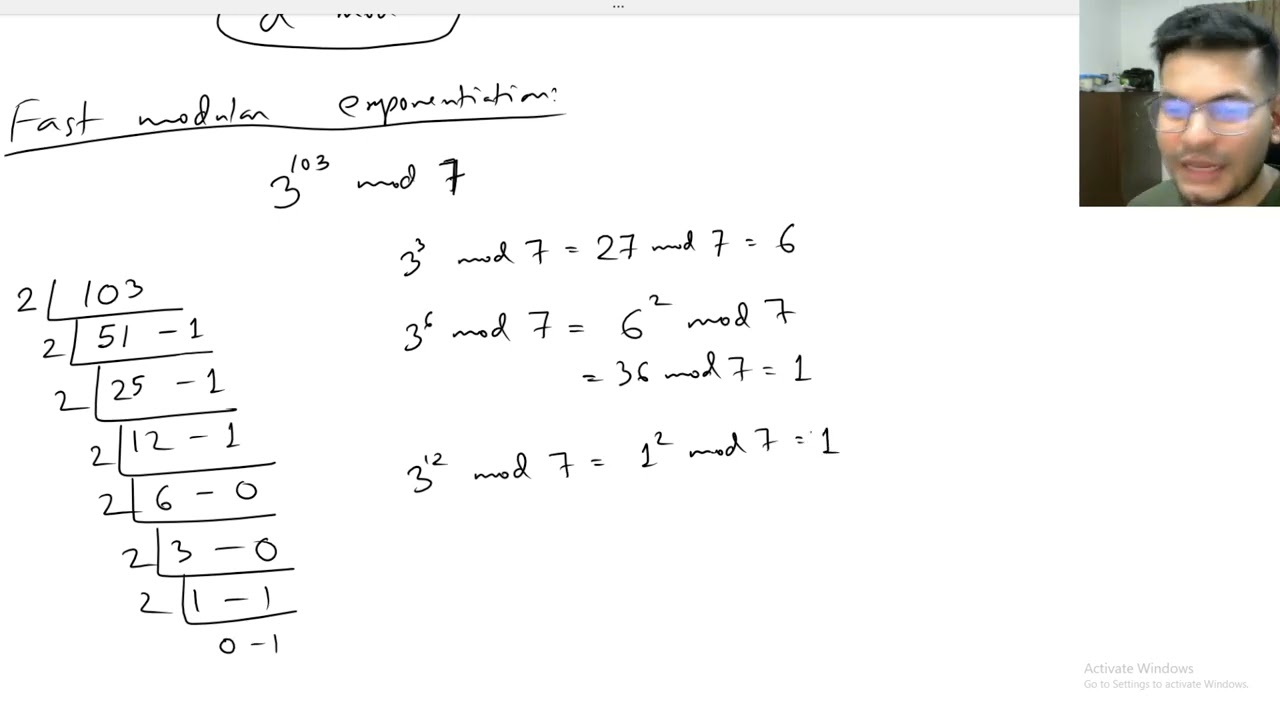 ...
a mod
Fast modular exponentiation:
3^103 mod 7
3^3 mod 7 = 27 mod 7 = 6
3^6 mod 7 = 6^2 mod 7
= 36 mod 7 = 1
3^12 mod 7 = 1^2 mod 7 = 1
2 | 103
2 | 51 - 1
2 | 25 - 1
2 | 12 - 1
2 | 6 - 0
2 | 3 - 0
2 | 1 - 1
0 - 1
Activate Windows
Go to Settings to activate Windows.